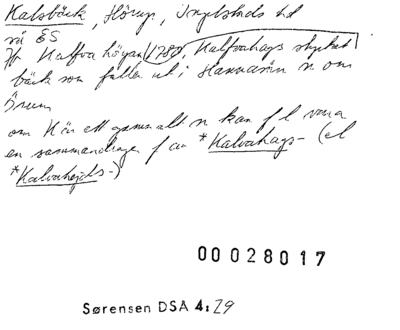 Kalsbäck, Hörup, Ingelstads hd
nu ES
Jfr Kalfva högan 1780, Kalfvahags stycket
bäck som faller ut i Hannasån n om
Örum
om K är ett gammalt n kan f l vara
en sammandragn f av *Kalvahags- (el
*Kalvahejds-)
00028017
Sørensen DSA 4:29